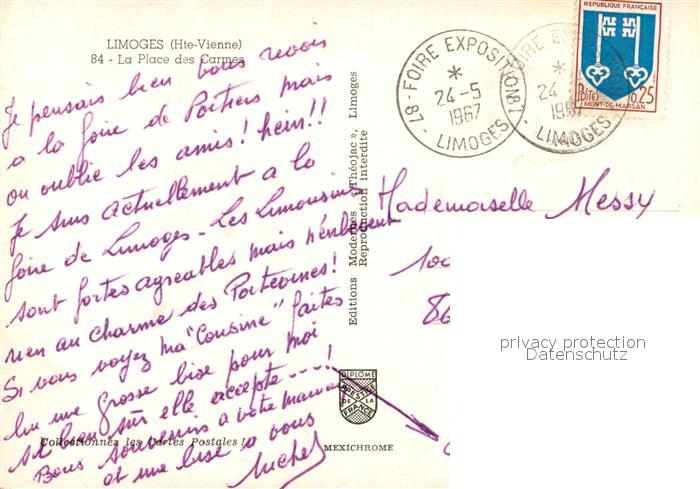 LIMOGES (Hte-Vienne)
84 - La Place des Carmes
Je pensais bien vous revoir
a la foire de Poitiers mais
on oublie les amis! hein!!
Je suis actuellement a la
foire de Limoges - Les Limousines
sont fortes agreables mais n'enlevent
rien au charme des Poitevines!
Si vous voyez ma "Cousine" faites
lui une grosse bise pour moi
si bien sûr elle accepte ---!
Bons souvenirs a votre maman
et une bise a vous
Michel
Collectionnez les Cartes Postales !
Editions Modernes « Théojac », Limoges
Reproduction interdite
DIPLOME
PRESTIGE
DE LA
FRANCE
MEXICHROME
87 - FOIRE EXPOSITION
24-5
1967
LIMOGES
87 - FOIRE EXPOSITION
24
1967
LIMOGES
REPUBLIQUE FRANÇAISE
POSTES
0,25
MONT-DE-MARSAN
Mademoiselle Messy
100
86
privacy protection
Datenschutz